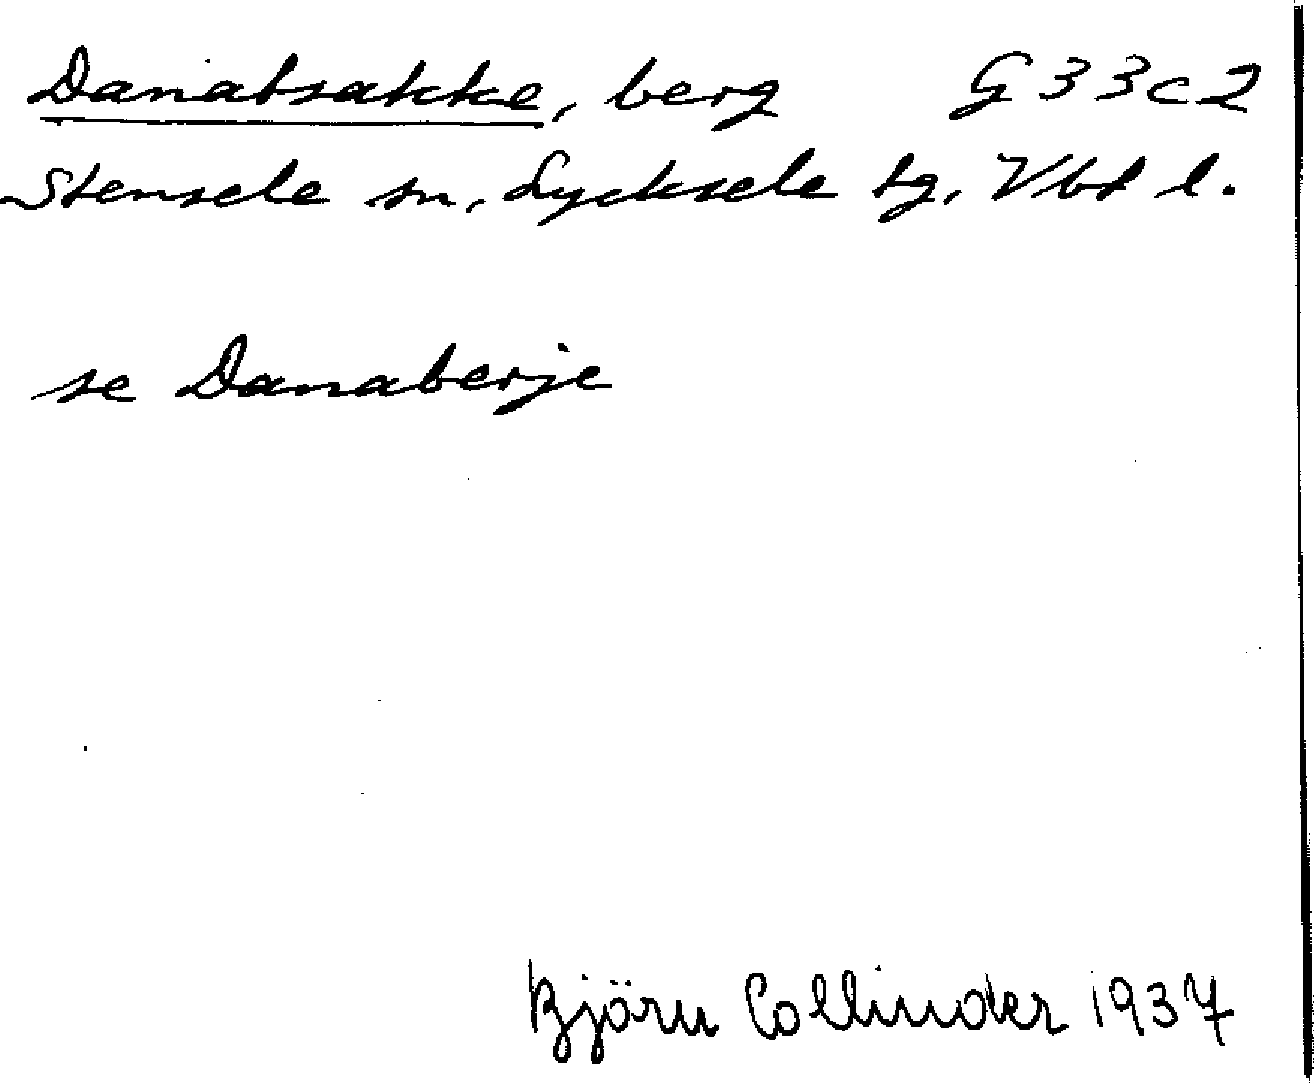 Danatsakke, berg G33c2
Stensele sn, Lycksele tg, Vbt l.
se Danaberje
Björn Collinder 1937